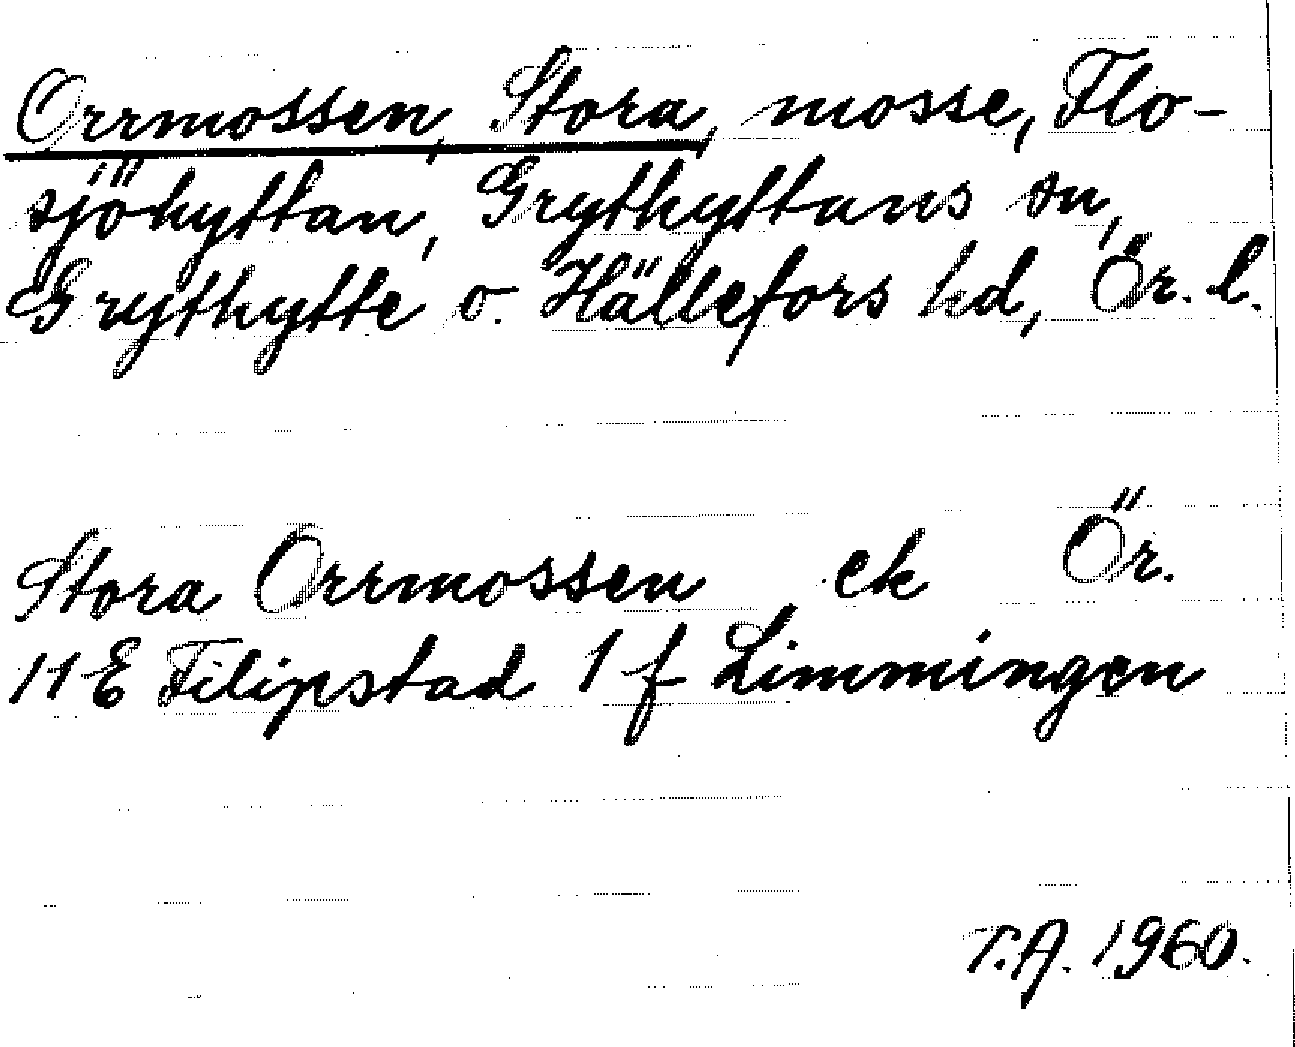 Orrmossen, Stora, mosse, Flo-
sjöhyttan, Grythyttans sn,
Grythytte o. Hällefors hd, Ör. l.
Stora Orrmossen ek Ör.
11 E Filipstad 1 f Limmingen
T.A. 1960.